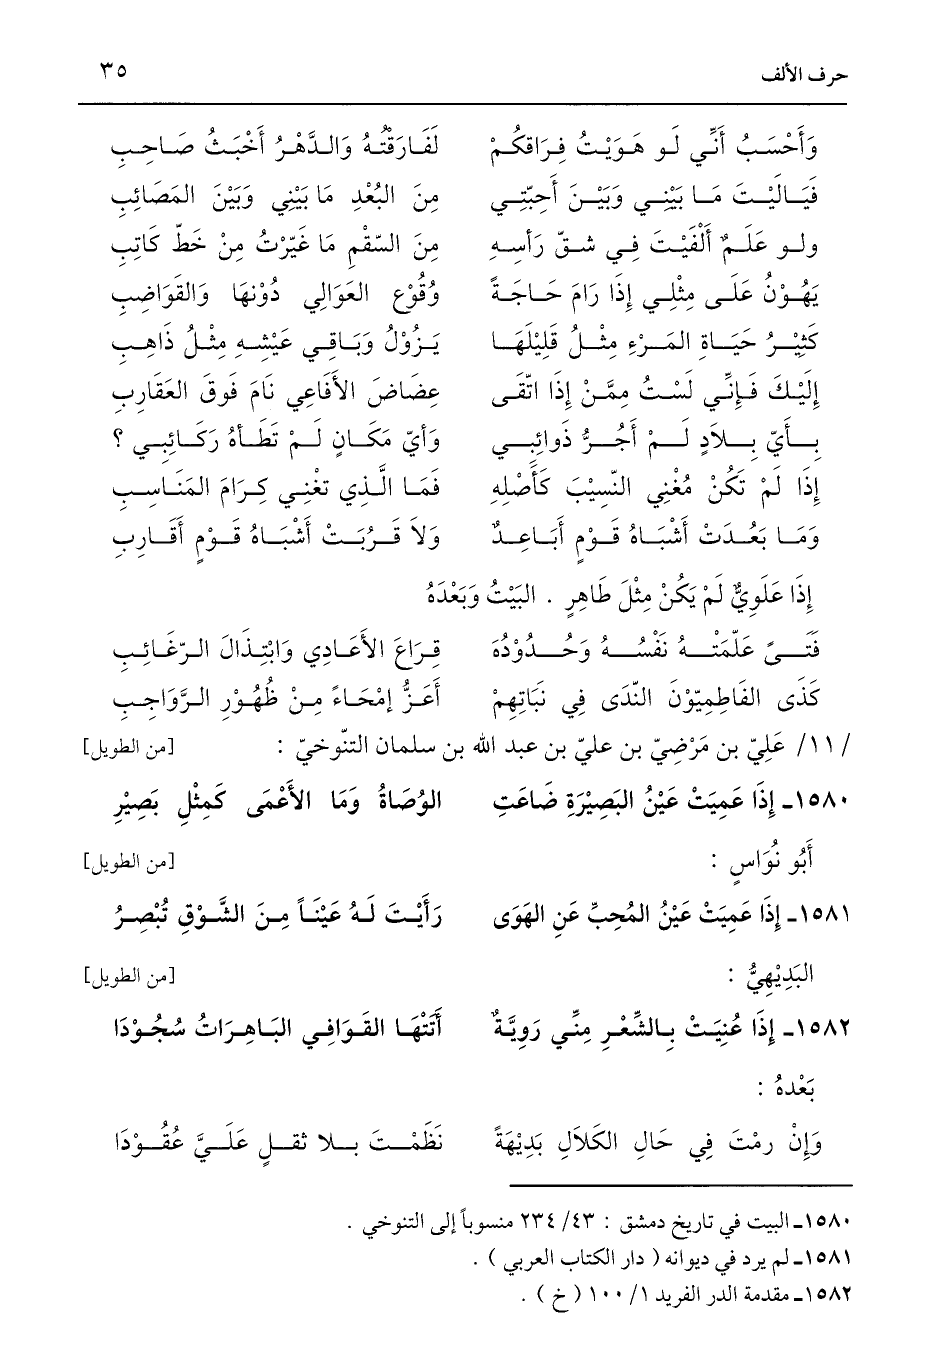 حرف الألف ٣٥
وَأَحْسَبُ أَنِّي لَو هَوَيْتُ فِرَاقكُمْ لَفَارَقْتُهُ وَالدَّهْرُ أَخْبَثُ صَاحِبِ
فَيَالَيْتَ مَا بَيْنِي وَبَيْنَ أَحِبّتِي مِنَ البُعْدِ مَا بَيْنِي وَبَيْنَ المَصَائِبِ
ولو عَلَمٌ أَلْقَيْتَ فِي شقّ رَأسِهِ مِنَ السّقْمِ مَا غَيّرْتُ مِنْ خَطّ كَاتِبِ
يَهُوْنُ عَلَى مِثْلِي إِذَا رَامَ حَاجَةً وُقُوْع العَوالِي دُوْنهَا وَالقَوَاضِبِ
كَثِيْرُ حَيَاة المَرْءِ مِثْلُ قَلِيْلَهَا يَزُوْلُ وَبَاقِي عَيْشِهِ مِثْلُ ذَاهِبِ
إِلَيْكَ فَإِنِّي لَسْتُ مِمَّنْ إِذَا اتّقَى عِضَاضَ الأَفَاعِي نَامَ فَوقَ العَقَاربِ
بِأَيّ بِلاَدٍ لَمْ أَجُرُّ ذَوائِبِي وَأيّ مَكَانٍ لَمْ تَطَأهُ رَكَائِبِي ؟
إِذَا لَمْ تَكُنْ مُغْنِي النّسِيْبَ كَأَصْلِهِ فَمَا الَّذِي تغْنِي كِرَامَ المَنَاسِبِ
وَمَا بَعُدَتْ أَشْبَاهُ قَوْمٍ أَبَاعِدٌ وَلاَ قَرُبَتْ أَشْبَاهُ قَوْمٍ أَقَارِبِ
إِذَا عَلَوِيٌّ لَمْ يَكُنْ مِثْلَ طَاهِرٍ . البَيْتُ وَبَعْدَهُ
فَتَىً عَلّمَتْهُ نَفْسُهُ وَحُدُوْدُهَ قِرَاعَ الأَعَادِي وَابْتِذَالَ الرّغَائِبِ
كَذَى الفَاطِمِيّوْنَ النّدَى فِي نَبَاتِهِمْ أَعَزُّ إمْحَاءً مِنْ ظُهُوْرِ الرَّوَاجِبِ
/ ١١/ عَلِيّ بن مَرْضِيّ بن عليّ بن عبد الله بن سلمان التنّوخيّ : [من الطويل]
١٥٨٠ـ إِذَا عَمِيَتْ عَيْنُ البَصِيْرَةِ ضَاعَتِ الوُصَاةُ وَمَا الأَعْمَى كَمِثْلِ بَصِيْرِ
أَبُو نُوَاسٍ : [من الطويل]
١٥٨١ـ إِذَا عَمِيَتْ عَيْنُ المُحِبِّ عَنِ الهَوَى رَأَيْتَ لَهُ عَيْنَاً مِنَ الشَّوْقِ تُبْصِرُ
البَدِيْهِيُّ : [من الطويل]
١٥٨٢ـ إِذَا عُنِيَتْ بِالشِّعْرِ مِنِّي رَوِيَّةٌ أَتَتْهَا القَوَافِي البَاهِرَاتُ سُجُوْدَا
بَعْدهُ :
وَإِنْ رمْتَ فِي حَالِ الكَلاَلِ بَدِيْهَةً نَظَمْتَ بِلا ثقلٍ عَلَيَّ عُقُوْدَا
١٥٨٠ـ البيت في تاريخ دمشق : ٤٣/ ٢٣٤ منسوباً إلى التنوخي .
١٥٨١ـ لم يرد في ديوانه ( دار الكتاب العربي ) .
١٥٨٢ـ مقدمة الدر الفريد ١/ ١٠٠ ( خ ) .